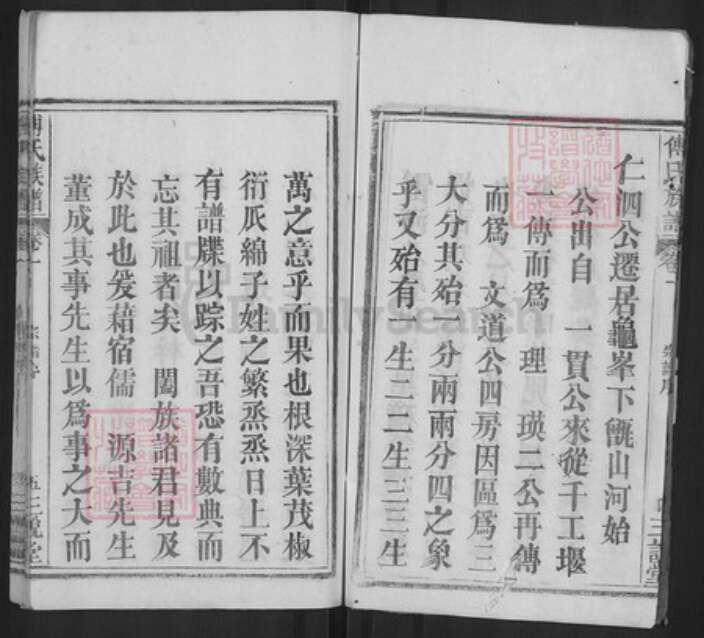 傅氏族譜 卷一 宗譜序 三諟堂
仁泗公遷居龜峯下甑山河始
公出自　一貫公來從千工堰
一傳而爲　理　瑛二公再傳
而爲　文道公四房因區爲三
大分其殆一分兩兩分四之象
乎又殆有一生二二生三三生
萬之意乎而果也根深葉茂椒
衍瓜綿子姓之繁烝烝日上不
有譜牒以踪之吾恐有數典而
忘其祖者矣　闔族諸君見及
於此也爰藉宿儒　源吉先生
董成其事先生以爲事之大而
傅氏族譜 卷一
FamilySearch